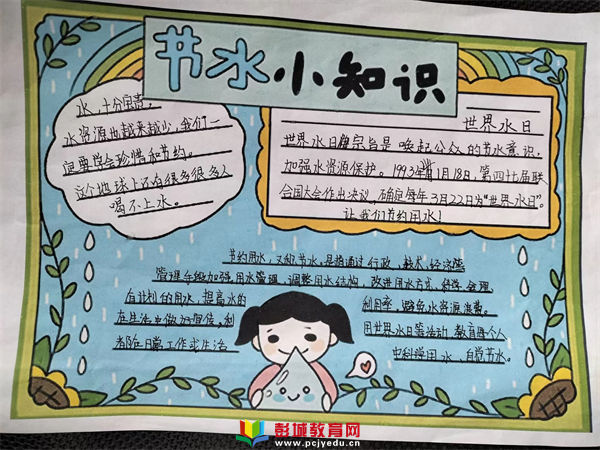 节水小知识
水，十分宝贵，
水资源也越来越少，我们一
定要学会珍惜和节约。
这个地球上还有很多很多人
喝不上水。
世界水日
世界水日的宗旨是唤起公众的节水意识，
加强水资源保护。1993年1月18日，第四十七届联
合国大会作出决议，确定每年3月22日为“世界水日”。
让我们节约用水！
节约用水，又称节水，是指通过行政、技术、经济等
管理手段加强用水管理，调整用水结构，改进用水方式，科学、合理、
有计划的用水，提高水的
利用率，避免水资源浪费。
在生活中做好宣传，利
用世界水日等活动，教育每个人
都在日常工作或生活
中科学用水，自觉节水。
彭城教育网
www.pcjyedu.cn